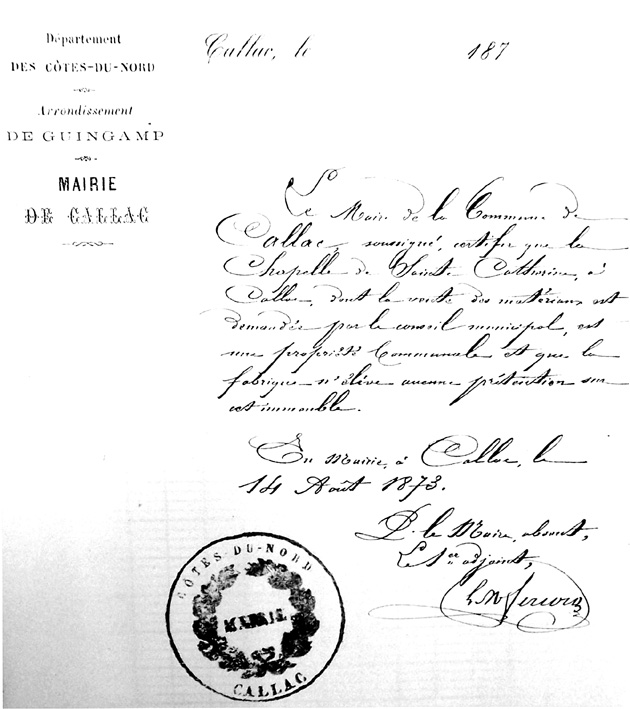 Département
DES CÔTES-DU-NORD
Arrondissement
DE GUINGAMP
MAIRIE
DE CALLAC
Callac, le 187
Le Maire de la Commune de
Callac, soussigné, certifie que la
Chapelle de Sainte Catherine, à
Callac, dont la vente des matériaux est
demandée par le conseil municipal, est
une propriété Communale et que la
fabrique n'élève aucune prétention sur
cet immeuble.
En Mairie, à Callac, le
14 Août 1873.
P. le Maire absent,
Le 1er adjoint,
CÔTES-DU-NORD
MAIRIE
CALLAC